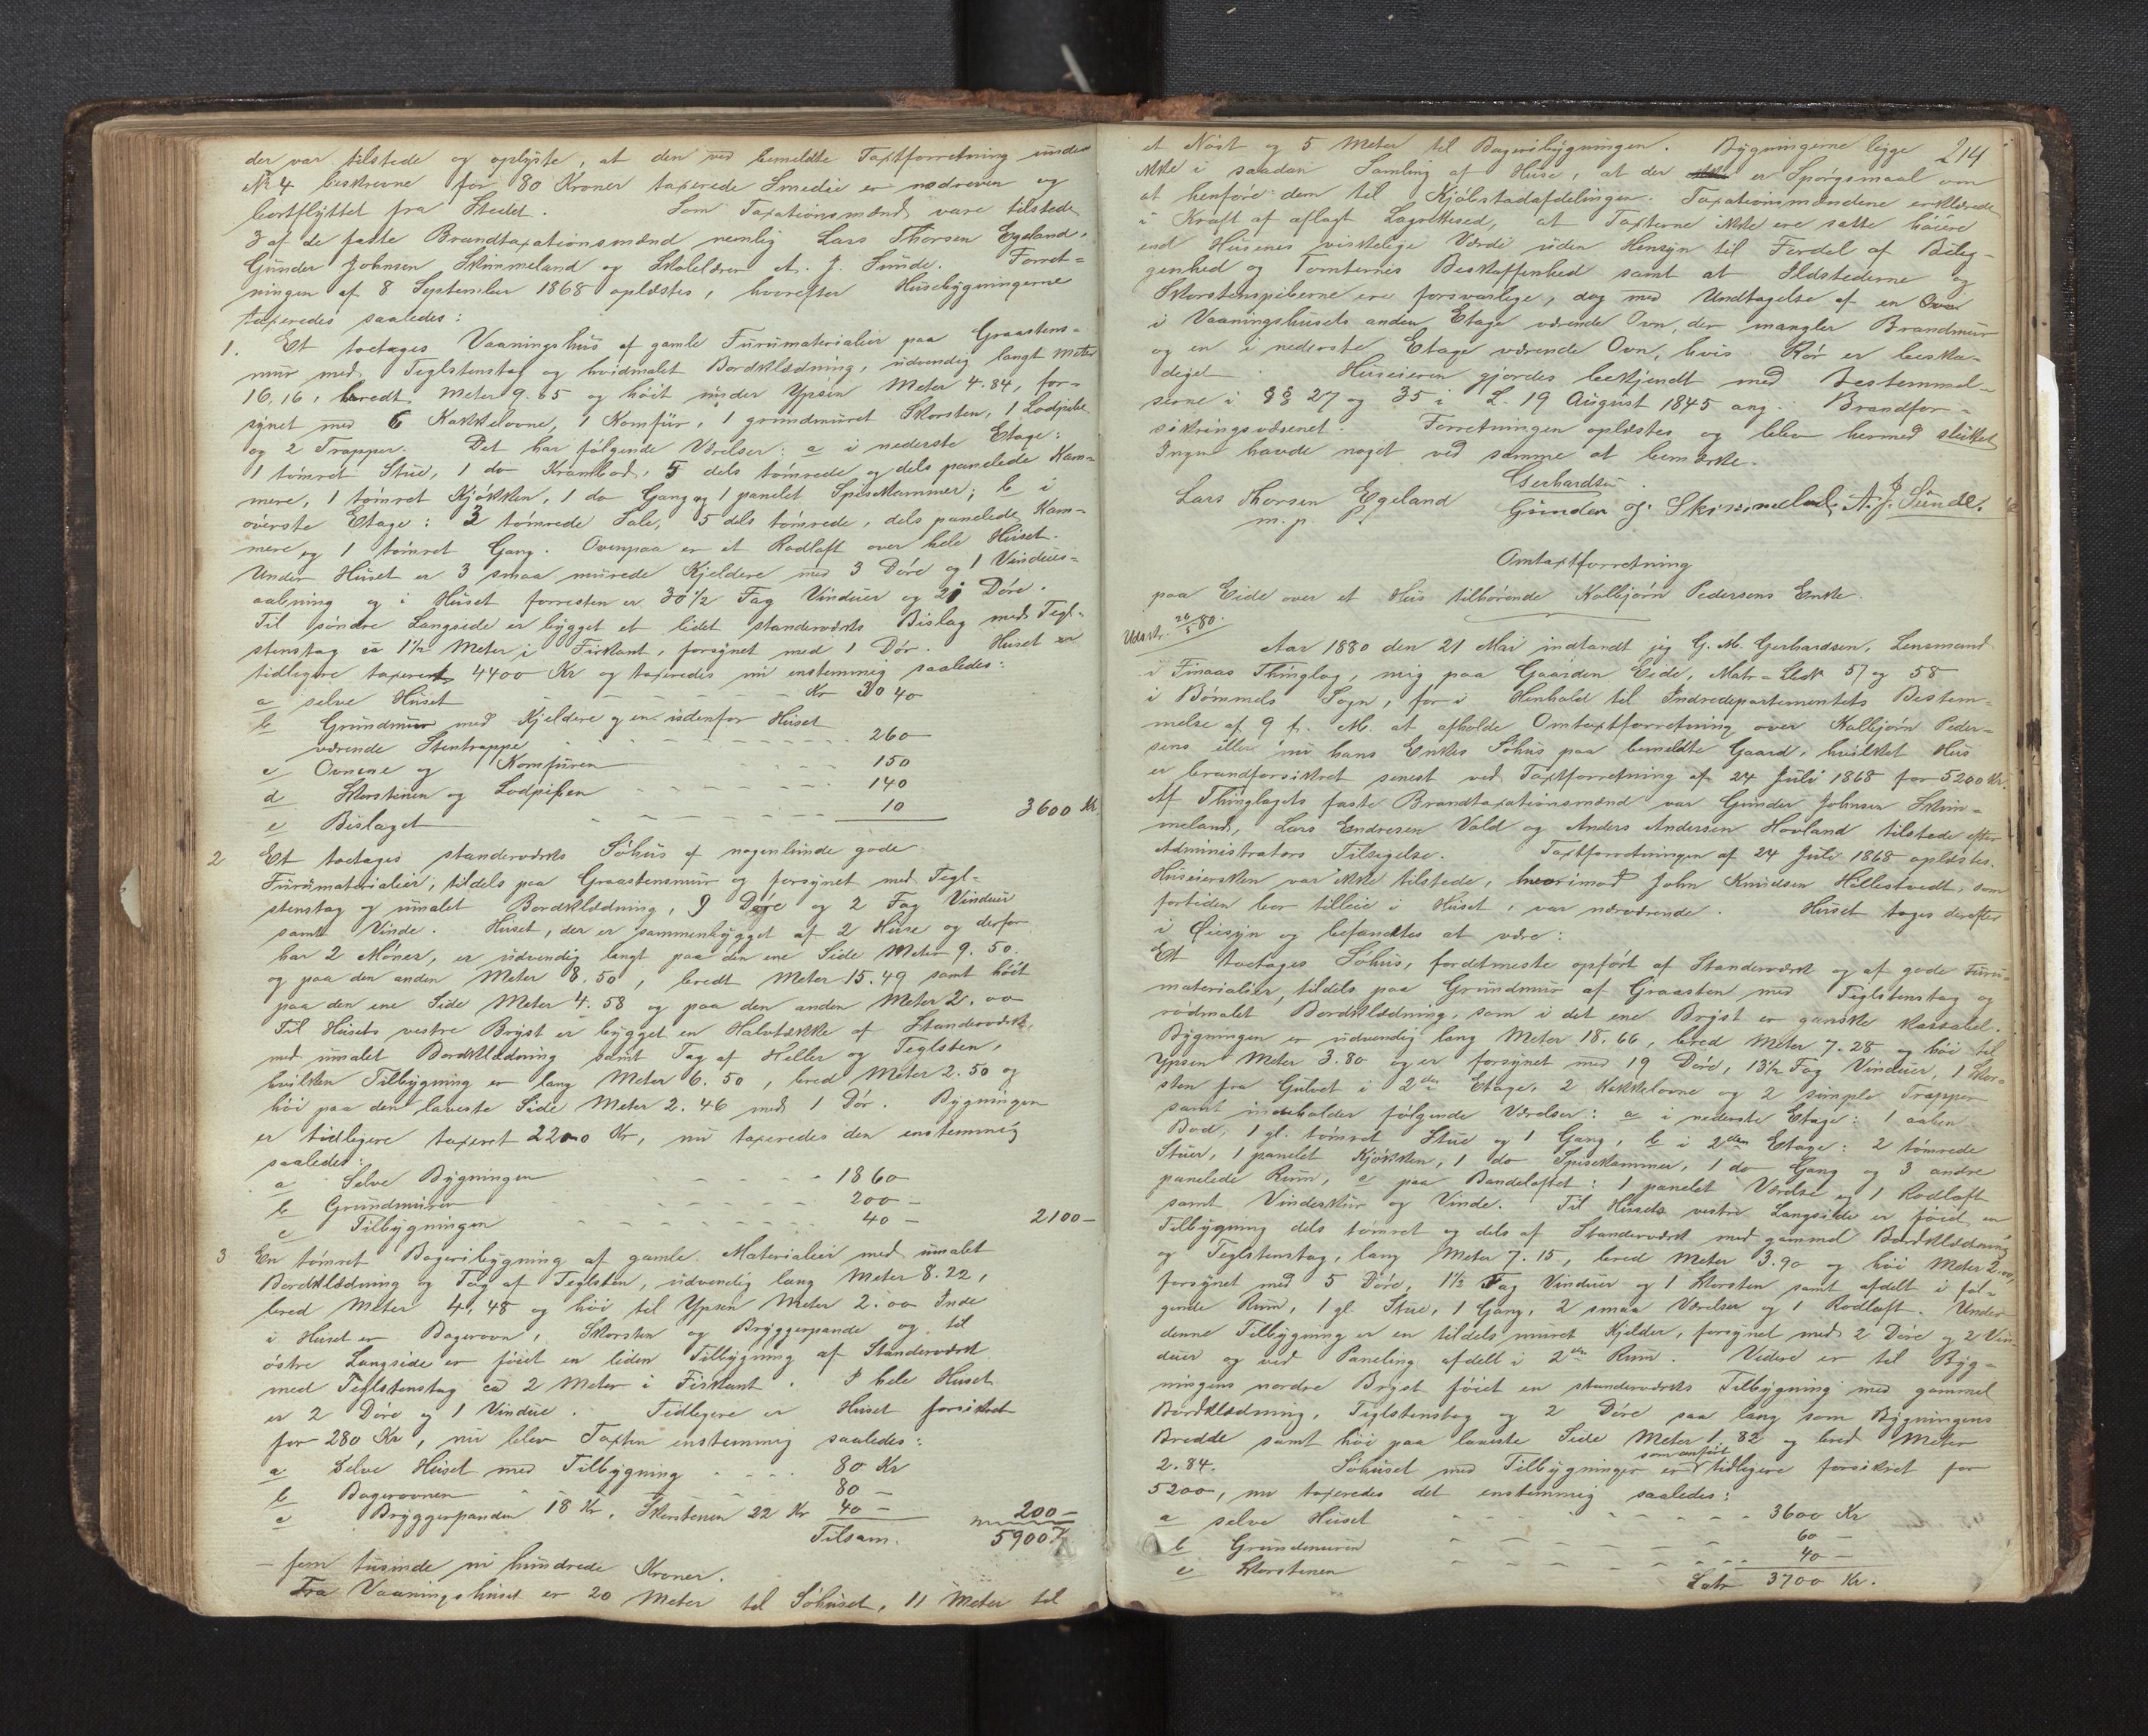 der var tilstede og oplyste, at den ved bemeldte Taxtforretning under
No 4 beskrevne for 80 Kroner taxerede Smedie er nedreven og
bortflyttet fra Stedet. Som Taxationsmænd vare tilstede
3 af de faste Brandtaxationsmænd nemlig Lars Thorsen Egeland,
Gunder Johnsen Skimmeland og Skolelærer A. J. Sunde. Forret-
ningen af 8 September 1868 oplæstes, hvorefter Husebygningerne
taxeredes saaledes:
1. Et toetages Vaaningshus af gamle Furumaterialier paa Graastens-
mur med Teglstenstag og hvidmalet Bordklædning, udvendig langt Meter
16.16, bredt Meter 9.65 og höit under Ypsen Meter 4.84, for-
synet med 6 Kakkelovne, 1 Komfur, 1 grundmuret Skorsten, 1 Lodpibe
og 2 Trapper. Det har fölgende Værelser: a i nederste Etage:
1 tömret Stue, 1 do Krambod, 5 dels tömrede og dels panelede Kam-
mere, 1 tömret Kjökken, 1 do Gang og 1 panelet Spisekammer; b i
överste Etage: 3 tömrede Sale, 5 dels tömrede, dels panelede Kam-
mere og 1 tömret Gang. Ovenpaa er et Rodloft over hele Huset.
Under Huset er 3 smaa murede Kjeldere med 3 Döre og 1 Vindues-
aabning og i Huset forresten er 30 1/2 Fag Vinduer og 21 Döre.
Til söndre Langside er bygget et lidet standerværks Bislag med Tegl-
stenstag ca 1 1/2 Meter i Firkant, forsynet med 1 Dör. Huset er
tidligere taxeret 4400 Kr og taxeredes nu enstemmig saaledes:
a selve Huset Kr 3040
b Grundmur med Kjeldere og en udenfor Huset
værende Stentrappe 260
c Ovnene og Komfuren 150
d Skorstenen og Lodpiben 140
e Bislaget 10 3600 Kr.
2 Et toetages standerværks Söhus af nogenlunde gode
Furumaterialier, tildels paa Graastensmur og forsynet med Tegl-
stenstag og umalet Bordklædning, 9 Döre og 2 Fag Vinduer
samt Vinde. Huset, der er sammenbygget af 2 Huse og derfor
har 2 Möner, er udvendig langt paa den ene Side Meter 9.50.
og paa den anden Meter 8.50, bredt Meter 15.49 samt höit
paa den ene Side Meter 4.58 og paa den anden Meter 2.00
Til Husets vestre Bryst er bygget en Halvtække af Standerværk
med umalet Bordklædning samt Tag af Heller og Teglsten,
hvilken Tilbygning er lang Meter 6.50, bred Meter 2.50 og
höi paa den laveste Side Meter 2.46 med 1 Dör. Bygningen
er tidligere taxeret 2200 Kr, nu taxeredes den enstemmig
saaledes:
a Selve Bygningen 1860
b Grundmuren 200 -
c Tilbygningen 40 - 2100 -
3 En tömret Bageribygning af gamle Materialier med umalet
Bordklædning og Tag af Teglsten, udvendig lang Meter 8.22,
bred Meter 4.48 og höi til Ypsen Meter 2.00 Inde
i Huset er Bagerovn, Skorsten og Bryggerpande og til
östre Langside er föiet en liden Tilbygning af Standerværk
med Teglstenstag ca 2 Meter i Firkant. I hele Huset
er 2 Döre og 1 Vindue. Tidligere er Huset forsikret
for 280 Kr, nu blev Taxten enstemmig saaledes:
a Selve Huset med Tilbygning 80 Kr
b Bagerovnen 80 -
c Bryggerpanden 18 Kr, Skorstenen 22 Kr 40 - 200 -
Tilsam. 5900 Kr
- fem tusinde ni hundrede Kroner.
Fra Vaaningshuset er 20 Meter til Söhuset, 11 Meter til
214
et Nöst og 5 Meter til Bageribygningen. Bygningerne ligge
ikke i saadan Samling af Huse, at der er Spörgsmaal om
at henföre dem til Kjöbstadafdelingen. Taxationsmændene erklærede
i Kraft af aflagt Lagrettesed, at Taxterne ikke ere satte höiere
end Husenes virkelige Værdi uden Hensyn til Fordel af Belig-
genhed og Tomternes Beskaffenhed samt at Ildstederne og
Skorstenspiberne ere forsvarlige, dog med Undtagelse af en Ovn
i Vaaningshusets anden Etage værende Ovn, der mangler Brandmur
og en i nederste Etage værende Ovn, hvis Rör er beska-
diget. Huseieren gjordes bekjendt med Bestemmel-
serne i §§ 27 og 35 i L. 19 August 1845 ang. Brandfor-
sikringsvæsenet. Forretningen oplæstes og blev hermed sluttet
Ingen havde noget ved samme at bemærke.
Gerhardsen.
Lars Thorsen Egeland Gunder J. Skimmeland. A. J. Sunde.
m. p.
Omtaxtforretning
paa Eide over et Hus tilhörende Kolbjörn Pedersens Enke.
Udskr. 26/5 80.
Aar 1880 den 21 Mai indfandt jeg G. M. Gerhardsen, Lensmand
i Finaas Thinglag, mig paa Gaarden Eide, Matr-Lbnr 57 og 58
i Bömmels Sogn, for i Henhold til Indredepartementets Bestem-
melse af 9 f. M. at afholde Omtaxtforretning over Kolbjörn Peder-
sens eller nu hans Enkes Söhus paa bemeldte Gaard, hvilket Hus
er brandforsikret senest ved Taxtforretning af 24 Juli 1868 for 5200 Kr.
Af Thinglagets faste Brandtaxationsmænd var Gunder Johnsen Skim-
meland, Lars Endresen Vold og Anders Andersen Hovland tilstede efter
Administrators Tilsigelse. Taxtforretningen af 24 Juli 1868 oplæstes.
Huseiersken var ikke tilstede, hvorimod John Knudsen Hillestvedt, som
fortiden bor tilleie i Huset, var nærværende. Huset toges derefter
i Öiesyn og befandtes at være:
Et toetages Söhus, fordetmeste opfört af Standerværk og af gode Furu-
materialier, tildels paa Grundmur af Graasten med Teglstenstag og
rödmalet Bordklædning, som i det ene Bryst er ganske kassabel.
Bygningen er udvendig lang Meter 18.66, bred Meter 7.28 og höi til
Ypsen Meter 3.80 og er forsynet med 19 Döre, 13 1/2 Fag Vinduer, 1 Skor-
sten fra Gulvet i 2den Etage, 2 Kakkelovne og 2 simple Trapper
samt indeholder fölgende Værelser: a i nederste Etage: 1 aaben
Bod, 1 gl. tömret Stue og 1 Gang, b i 2den Etage: 2 tömrede
Stuer, 1 panelet Kjökken, 1 do Spisekammer, 1 do Gang og 3 andre
panelede Rum, c paa Bandeloftet: 1 panelet Værelse og 1 Rodloft
samt Vindeskur og Vinde. Til Husets vestre Langside er föiet en
Tilbygning dels tömret og dels af Standerværk med gammel Bordklædning
og Teglstenstag, lang Meter 7.15, bred Meter 3.90 og höi Meter 2.00,
forsynet med 5 Döre, 1 1/2 Fag Vinduer og 1 Skorsten samt afdelt i föl-
gende Rum, 1 gl. Stue, 1 Gang, 2 smaa Værelser og 1 Rodloft. Under
denne Tilbygning er en tildels muret Kjelder, forsynet med 2 Döre og 2 Vin-
duer og ved Paneling afdelt i 2de Rum. Videre er til Byg-
ningens nordre Bryst föiet en standerværks Tilbygning med gammel
Bordklædning, Teglstenstag og 2 Döre saa lang som Bygningens
Bredde samt höi paa laveste Side Meter 1.82 og bred Meter
2.84. Söhuset med Tilbygninger er som anfört tidligere forsikret for
5200, nu taxeredes det enstemmig saaledes:
a selve Huset 3600 Kr
b Grundmuren 60 -
c Skorstenen 40 -
Latr 3700 Kr.